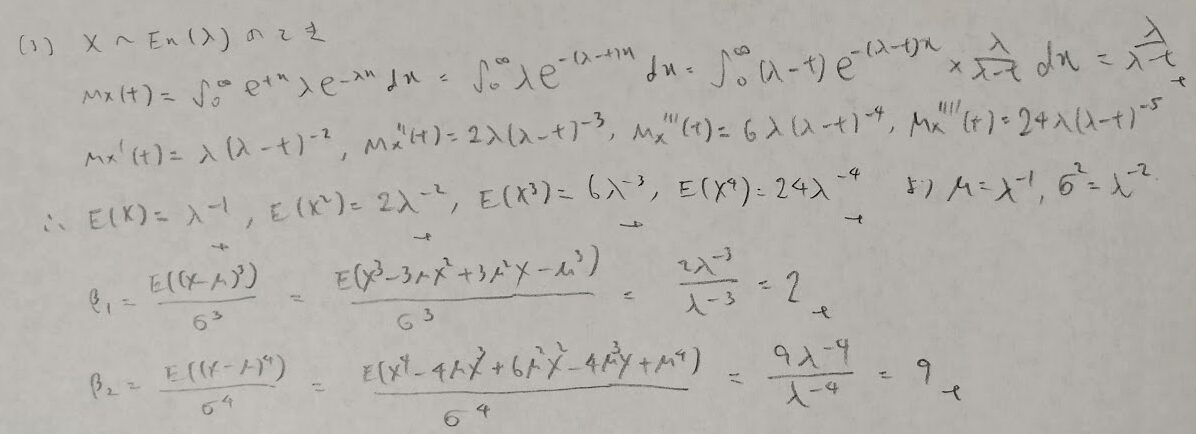 (3) X ~ Ex(λ) のとき
Mx(t) = ∫₀^∞ e^{tx} λe^{-λx} dx = ∫₀^∞ λe^{-(λ-t)x} dx = ∫₀^∞ (λ-t) e^{-(λ-t)x} × λ/(λ-t) dx = λ/(λ-t)
Mx'(t) = λ(λ-t)^{-2}, Mx''(t) = 2λ(λ-t)^{-3}, Mx'''(t) = 6λ(λ-t)^{-4}, Mx''''(t) = 24λ(λ-t)^{-5}
∴ E(X) = λ^{-1}, E(X²) = 2λ^{-2}, E(X³) = 6λ^{-3}, E(X⁴) = 24λ^{-4} より μ = λ^{-1}, σ² = λ^{-2}.
β₁ = E((X-μ)³)/σ³ = E(X³-3μX²+3μ²X-μ³)/σ³ = 2λ^{-3}/λ^{-3} = 2
β₂ = E((X-μ)⁴)/σ⁴ = E(X⁴-4μX³+6μ²X²-4μ³X+μ⁴)/σ⁴ = 9λ^{-4}/λ^{-4} = 9